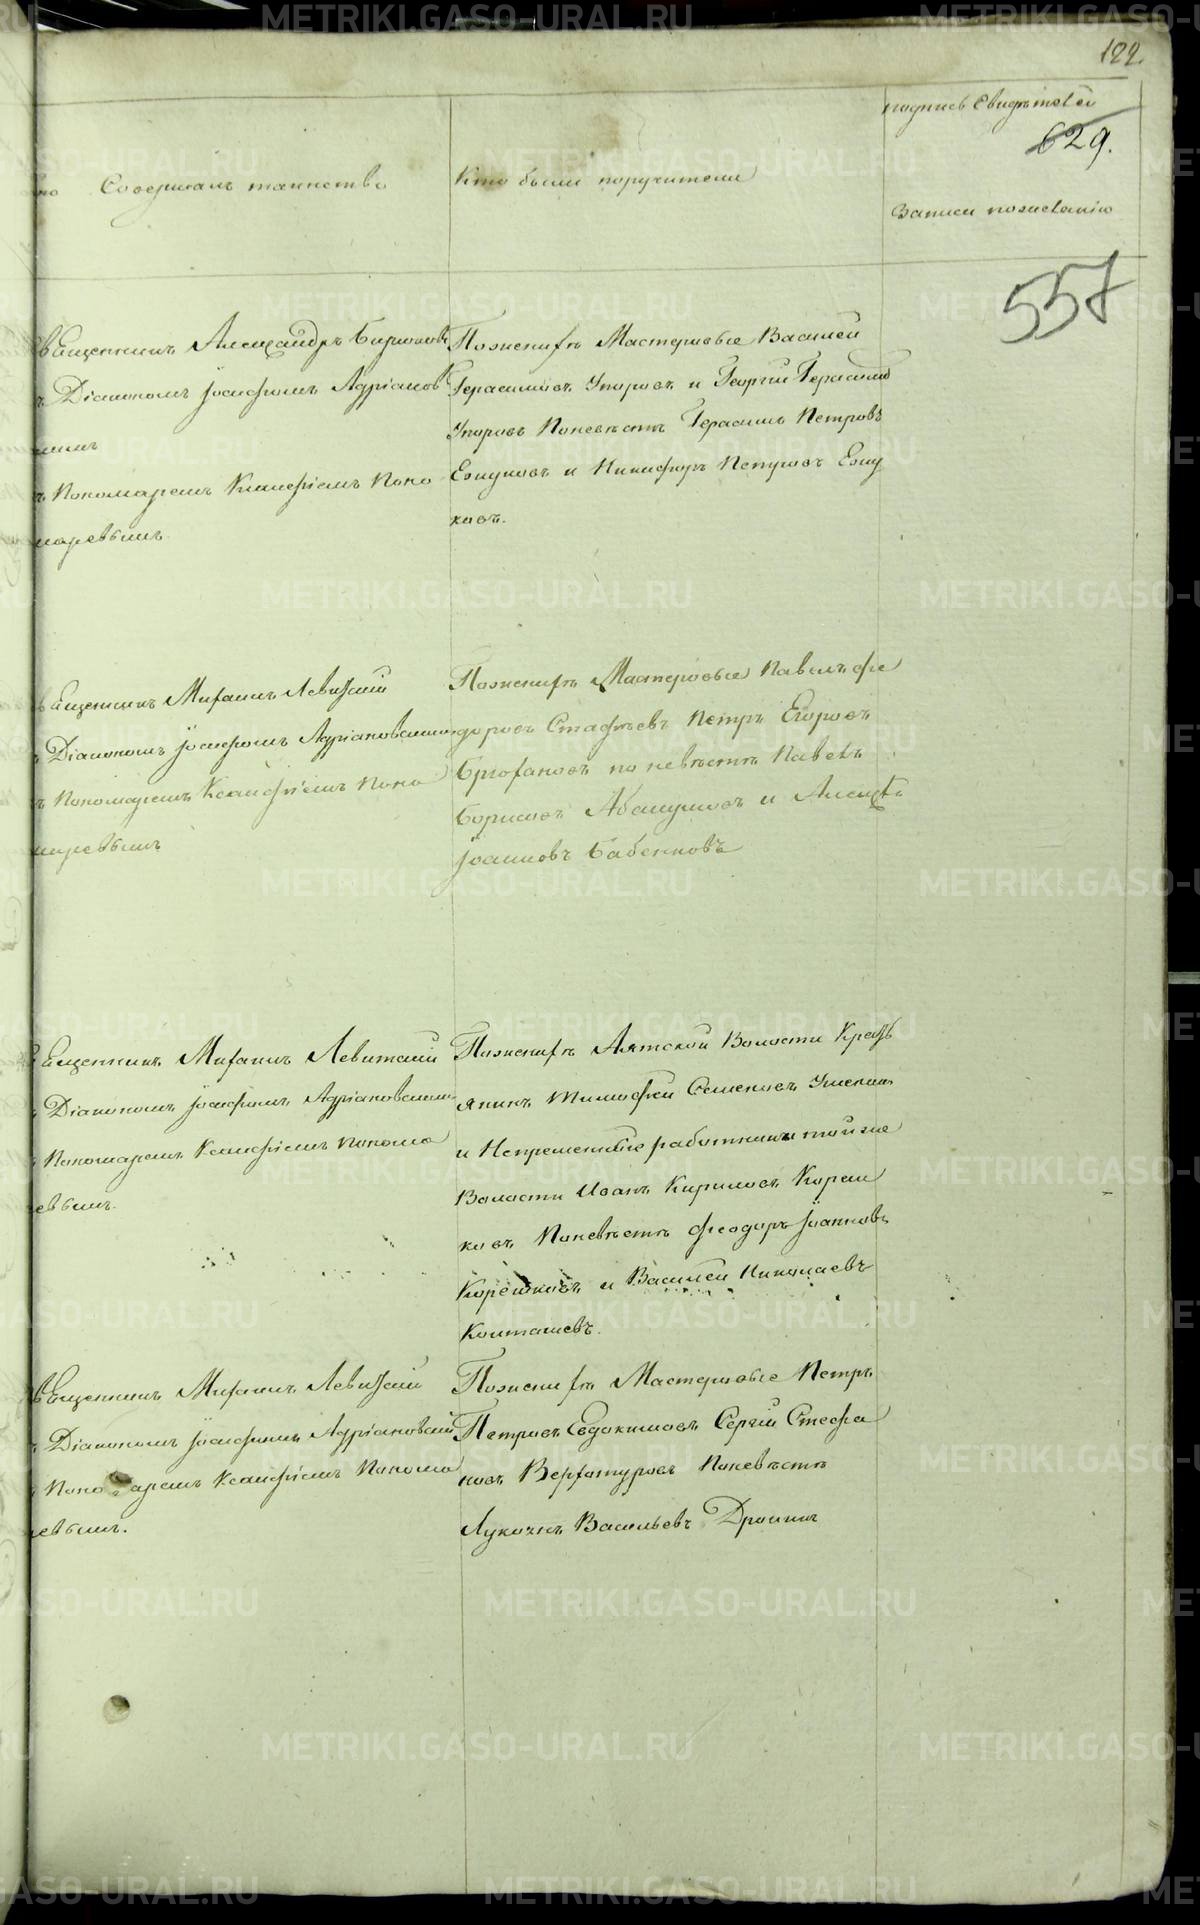 122.
подпись свидѣтелей
629.
Совершалъ таинство
Кто были поручители
Записи по желанію
557
Священникъ Александръ Бирюковъ
Діакономъ Іосифомъ Адріанов
скимъ
Пономаремъ Ксанфіемъ Поно
маревымъ.
По женихѣ Мастеровые Василей
Герасимовъ Упоровъ и Георгій Герасимовъ
Упоровъ По невѣстѣ Герасимъ Петровъ
и Никифоръ Петровъ
ковъ.
Священникъ Михаилъ Левитскій
Діакономъ Іосифомъ Адріановскимъ
Пономаремъ Ксанфіемъ Поно
маревымъ
По женихѣ Мастеровые Павелъ Фе
доровъ Стафѣевъ Петръ Егоровъ
по невѣстѣ Павелъ
Борисовъ Абакумовъ и Алексѣй
Іоанновъ Бабенковъ
Священникъ Михаилъ Левитскій
Діакономъ Іосифомъ Адріановскимъ
Пономаремъ Ксанфіемъ Понома
евымъ.
По женихѣ Аятской Волости Кресть
янинъ Тимофей Семеновъ
и Непременные работники той же
Волости Иванъ Кириловъ Кореш
ковъ По невѣстѣ Феодоръ Іоанновъ
Корешковъ и Василей Николаевъ
Колташевъ.
Священникъ Михаилъ Левитскій
Діакономъ Іосифомъ Адріановскимъ
Пономаремъ Ксанфіемъ Понома
ревымъ.
По женихѣ Мастеровые Петръ
Петровъ Евдокимовъ Сергій Стефа
новъ Верхотуровъ По невѣстѣ
Васильевъ
METRIKI.GASO-URAL.RU